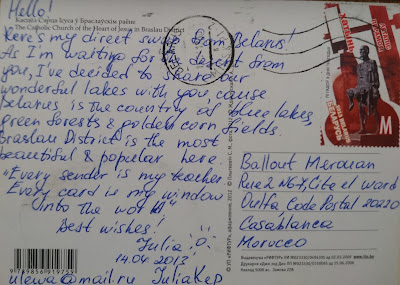 Hello!
Касцёл Сэрца Ісуса ў Браслаўскім раёне
The Catholic Church of the Heart of Jesus in Braslau District
Here's my direct swap from Belarus!
As I'm waiting for the desert from
you, I've decided to share our
wonderful lakes with you cause
Belarus is the country of blue lakes,
green forests & golden corn fields.
Braslau District is the most
beautiful & popular here.
"Every sender is my teacher.
Every card is my window
into the world,"
Best wishes!
Julia
14.04 2013
ulewa@mail.ru JuliaKep
9789856919759
БЕЛАРУСЬ
M
Ballout Merouan
Rue 2 N6Y, Cite el ward
Oulfa Code Postal 20220
Casablanca
Morocco